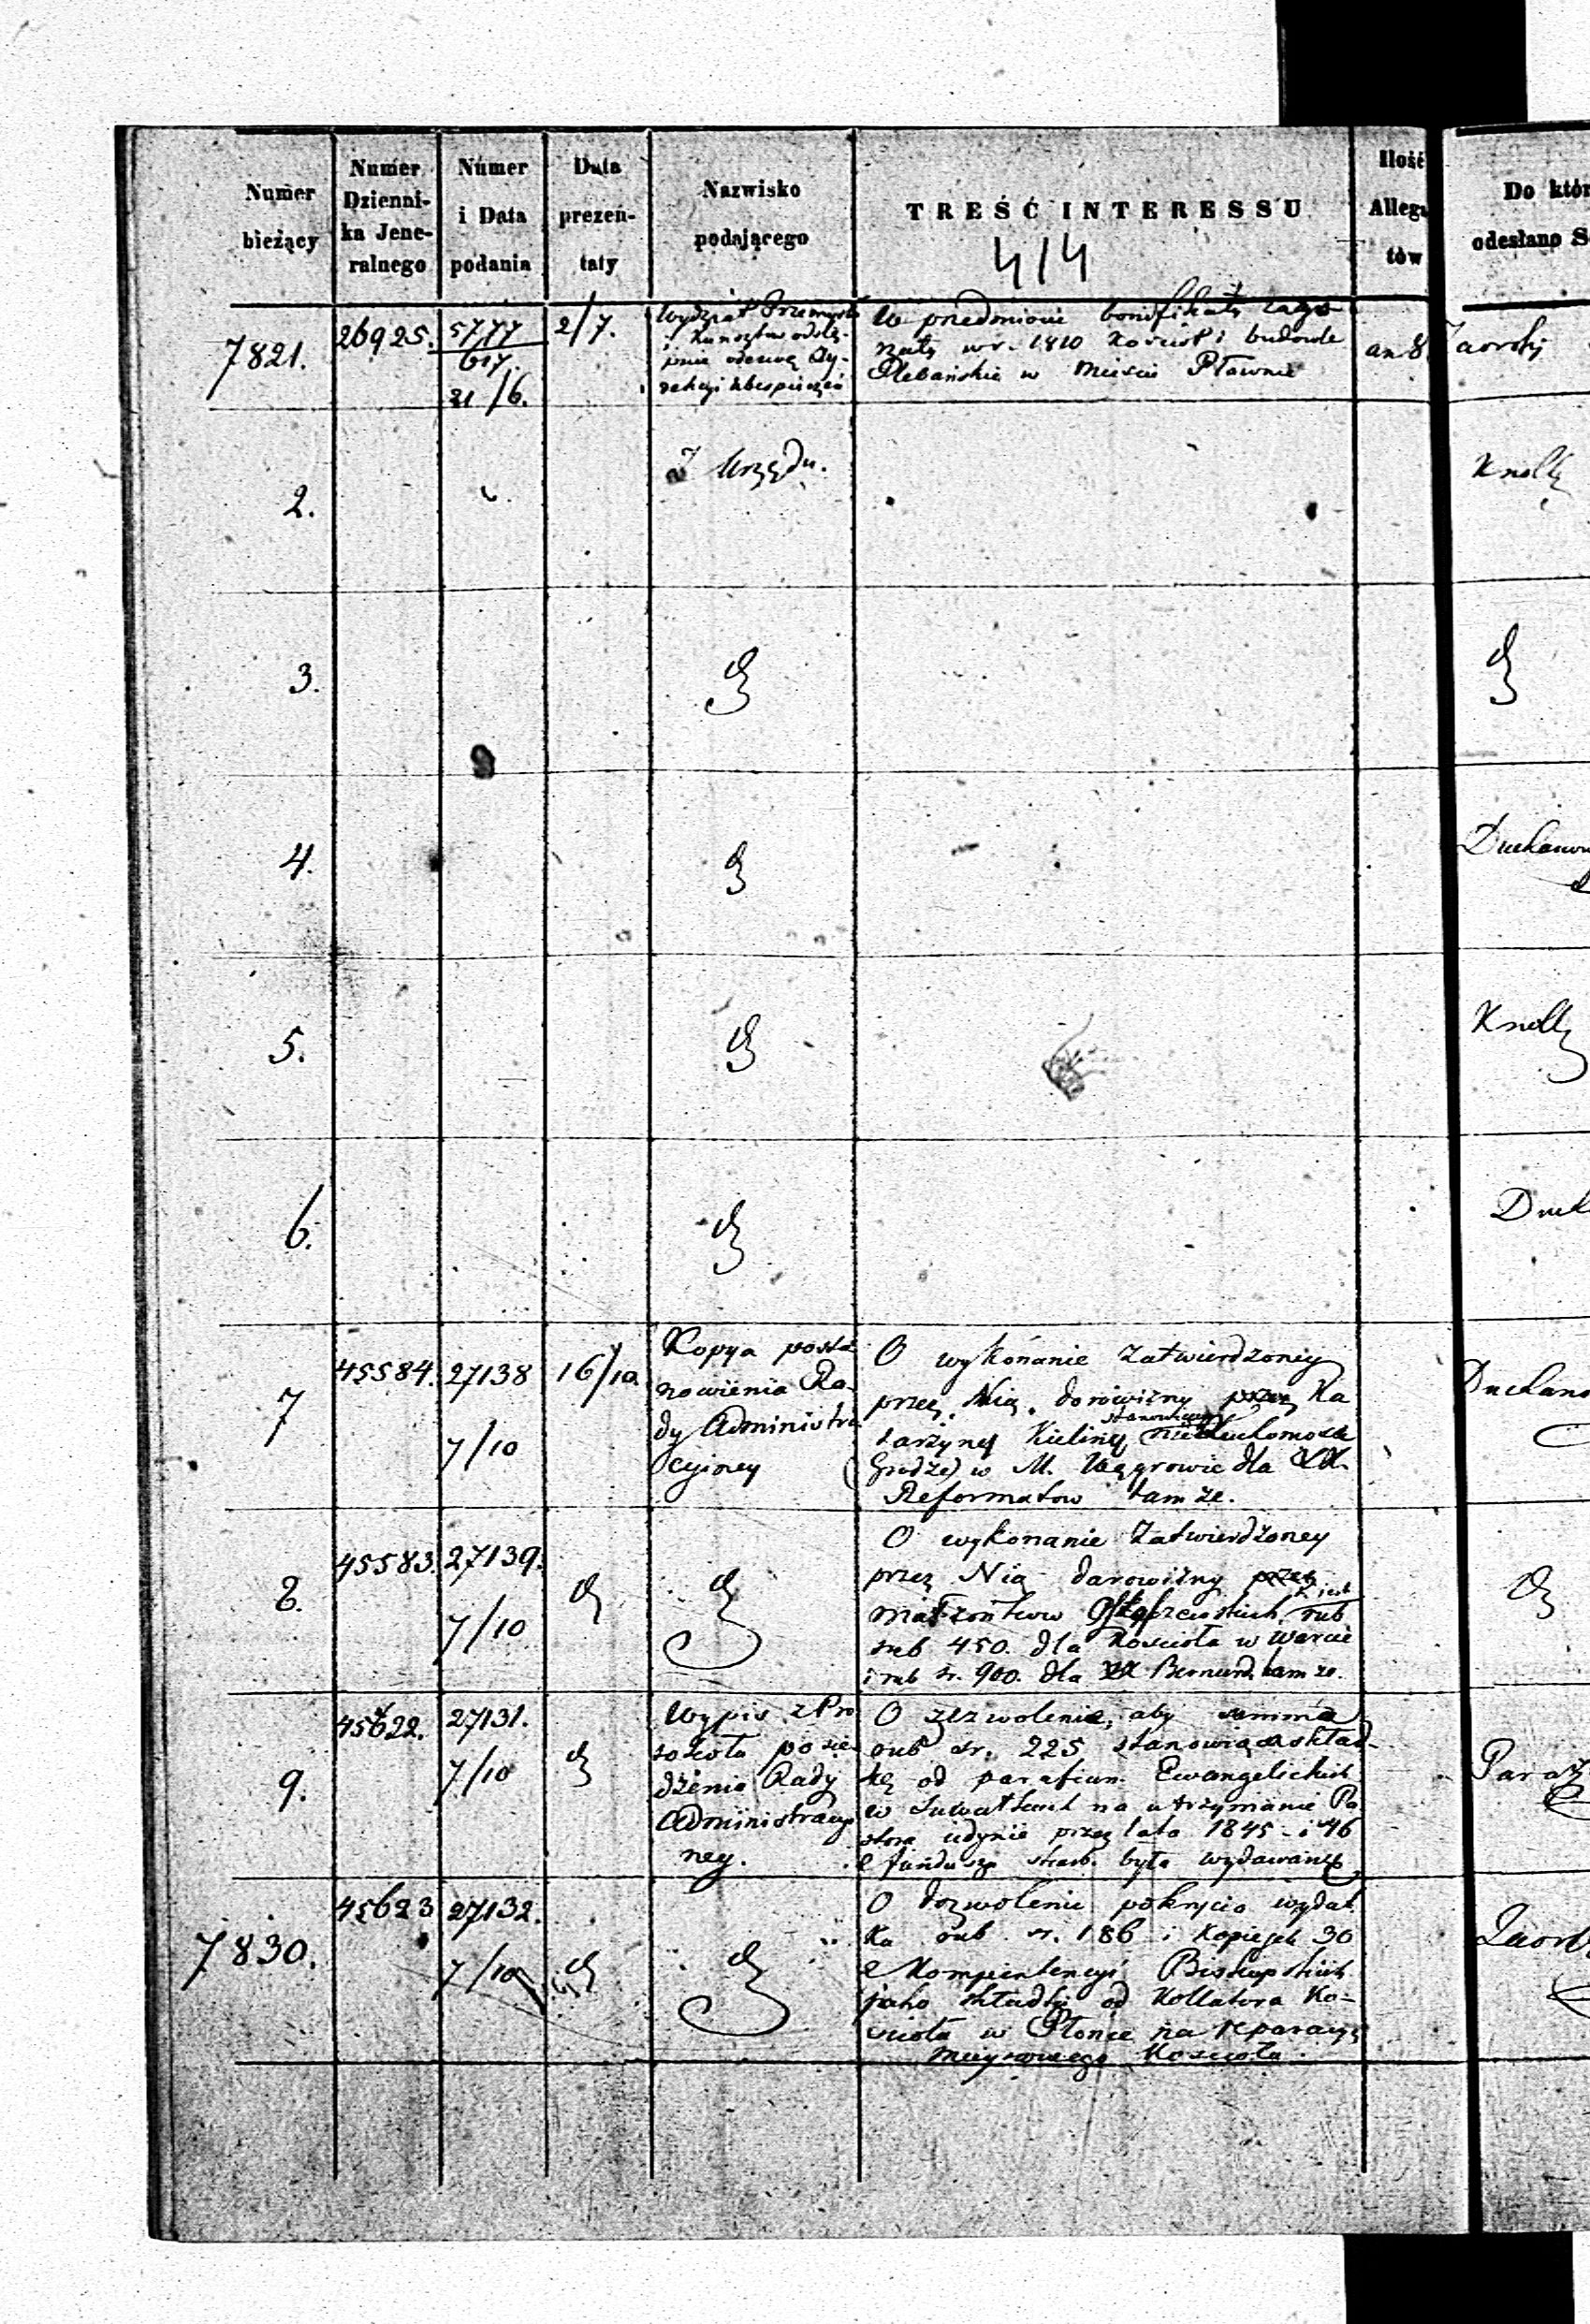 Numer bieżący
Numer Dzienni-ka Jene-ralnego
Numer i Data podania
Data prezen-taty
Nazwisko podającego
TREŚĆ INTERESSU
414
Ilość Allega tów
Do któr
odesłano S
7821.
26925.
5777
617.
21/6.
2/7.
Wydział Przemysłu
i Kunsztów
W przedmiocie bonifikaty
w r. 1810 Kościoł i budowle
Plebańskie w Mieście Pławnie
an 8.
2.
Z Urzędu.
Knoll
3.
4.
5.
Knoll
6.
7
45584.
27138
7/10
16/10
Kopya posta
nowienia Ra-
dy Administra
cyiney
O wykonanie Zatwierdzoney
przez Nią darowizny przez Ka
tarzynę
w M. Węgrowie dla XX.
Reformatow tamże.
8.
45583.
27139.
7/10
O wykonanie Zatwierdzoney
przez Nią darowizny przez
małżonkow rub
sreb 450. dla Kościoła w Warcie
i rub sr. 900. dla XX Bernard. tamże.
9.
45622.
27131.
7/10
Wypis z Pro
tokołu posie
dzenia Rady
Administracyi
ney.
O zezwolenie, aby summa
rub sr. 225 stanowiąca skład-
kę od parafian Ewangelickich
w Suwałkach na utrzymanie Pa
stora jedynie przez lata 1845 i 46
z funduszu skarb. była wydawaną
7830.
45623
27132.
7/10
O dozwolenie pokrycia wydat
ku rub. sr. 186 i Kopiejek 30
z Kompetencyi Biskupskich
jako składki od Kollatora Ko-
ścioła w Płonce na reparacyę
mieyscowego Kościoła.